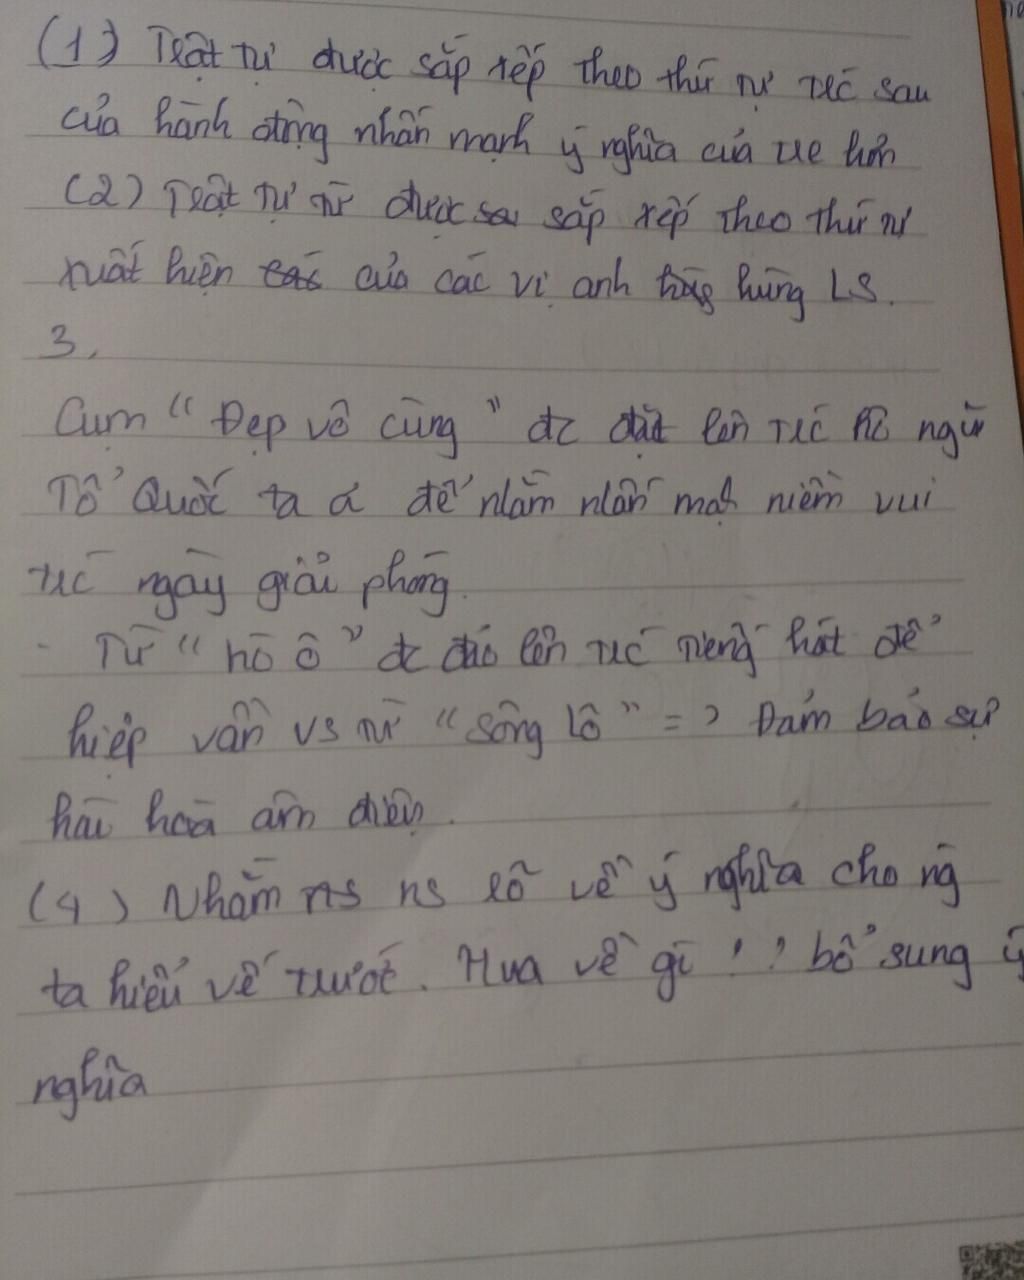 (1) Trật tự được sắp xếp theo thứ tự trc sau
của hành động nhấn mạnh ý nghĩa của hơn
(2) Trật tự từ được sắp xếp theo thứ tự
xuất hiện của các vị anh hùng LS.
3,
Cụm "Đẹp vô cùng" đc đặt lên trc hô ngữ
Tổ Quốc ta ơi để nhằm nhấn mạh niềm vui
trc ngày giải phóng.
- Từ "hò ô" đc đảo lên trc tiếng hát để
hiệp vần vs từ "sông Lô" => Đảm bảo sự
hài hoà âm điệu.
(4) Nhằm ns rõ về ý nghĩa cho ng
ta hiểu về trước. Mua về gì ! ? bổ sung ý
nghĩa